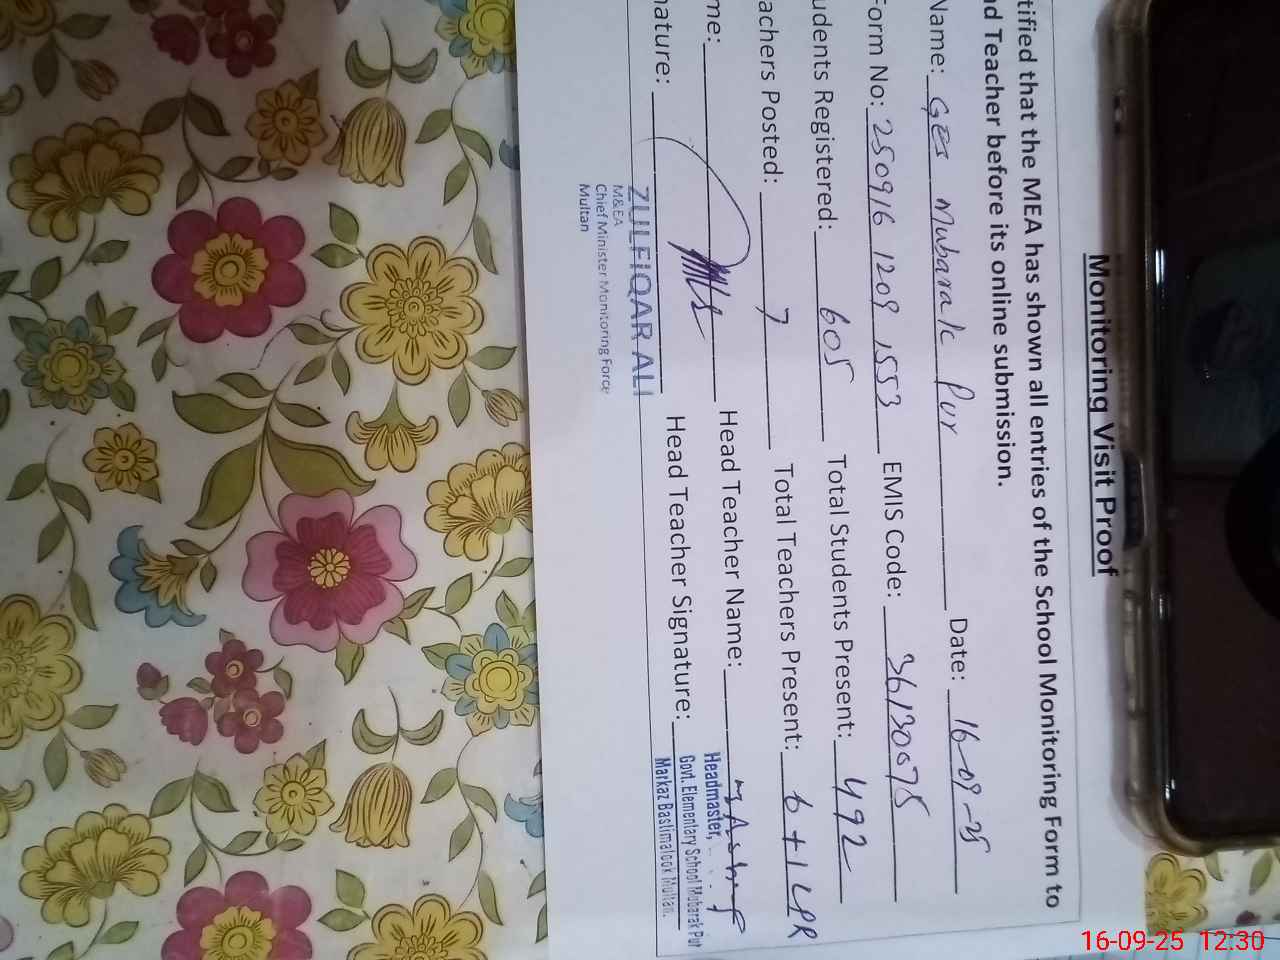 Monitoring Visit Proof
tified that the MEA has shown all entries of the School Monitoring Form to
ad Teacher before its online submission.
Name: GES Mubarak Pur Date: 16-09-25
Form No: 250916 1209 1553 EMIS Code: 36130075
udents Registered: 605 Total Students Present: 492
achers Posted: 7 Total Teachers Present: 6+1 LPR
me: Head Teacher Name: M Ashraf
nature: Head Teacher Signature:
Headmaster,
Govt. Elementary School Mubarak Pur
Markaz Bastimalook Multan.
ZULFIQAR ALI
M&EA
Chief Minister Monitoring Force
Multan
16-09-25 12:30